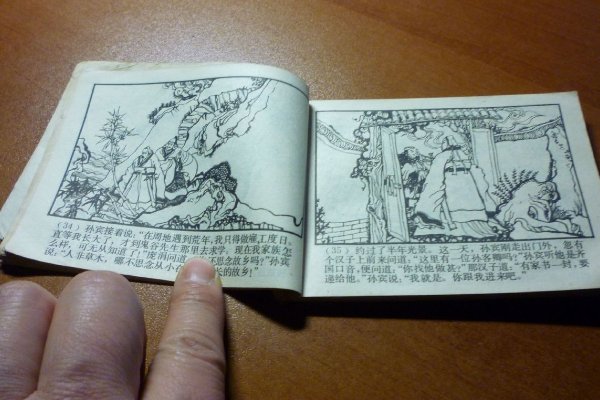 (34) 孙宾接着说:“在周地遇到荒年,我只得做雇工度日,
直等我长大了,才到鬼谷先生那里去求学。现在我家族怎
么样,可无从知道了!”庞涓问道: 不思念故乡吗?”孙宾
说:“人非草木,哪不思念从小在 长的故乡!”
(35) 约过了半年光景。这一天,孙宾刚走出门外,忽有
个汉子上前来问道:“这里有一位孙客卿吗?”孙宾听他是齐
国口音,便问道:“你找他做甚?”那汉子道:“有家书一封,要
递给他。”孙宾说:“我就是,你跟我进来吧。”